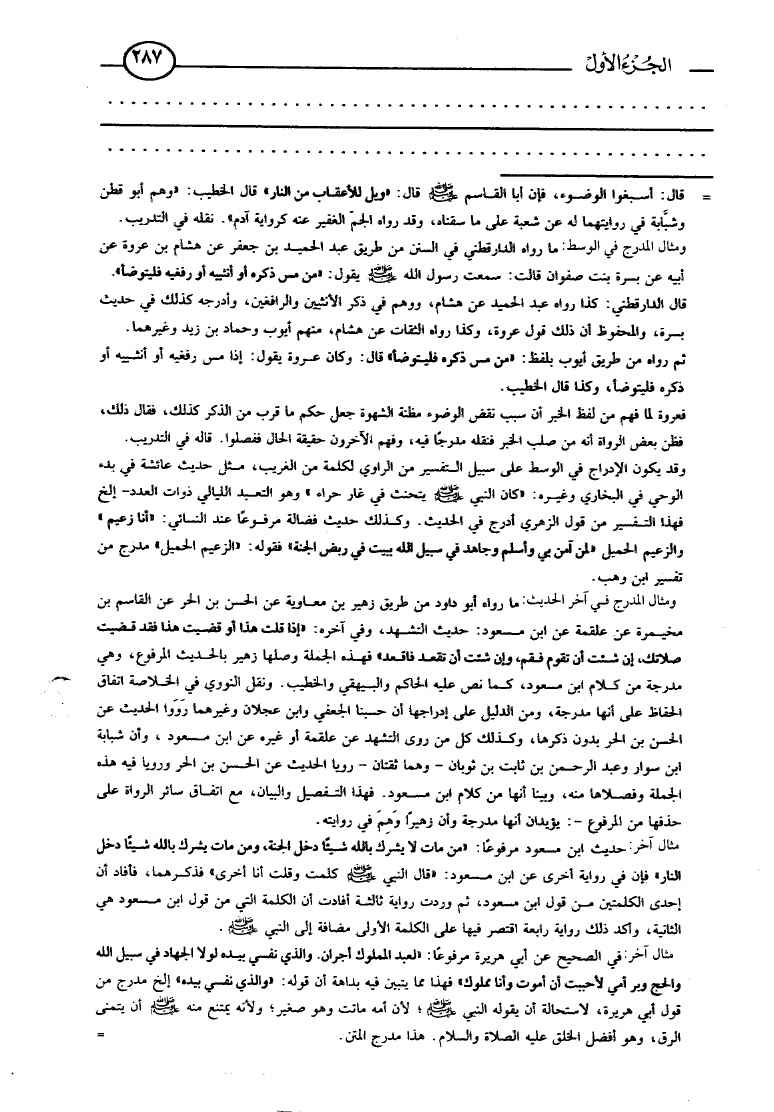 الجزء الأول
٢٨٧
= قال: أسبغوا الوضوء، فإن أبا القاسم ﷺ قال: «ويل للأعقاب من النار» قال الخطيب: «وهم أبو قطن
وشبَّابة في روايتهما له عن شعبة على ما سقناه، وقد رواه الجمّ الغفير عنه كرواية آدم». نقله في التدريب.
ومثال المدرج في الوسط: ما رواه الدارقطني في السنن من طريق عبد الحميد بن جعفر عن هشام بن عروة عن
أبيه عن بسرة بنت صفوان قالت: سمعت رسول الله ﷺ يقول: «من مس ذكره أو أنثييه أو رفغيه فليتوضأ».
قال الدارقطني: كذا رواه عبد الحميد عن هشام، ووهم في ذكر الأنثيين والرافغين، وأدرجه كذلك في حديث
بسرة، والمحفوظ أن ذلك قول عروة، وكذا رواه الثقات عن هشام، منهم أيوب وحماد بن زيد وغيرهما.
ثم رواه من طريق أيوب بلفظ: «من مس ذكره فليتوضأ» قال: وكان عروة يقول: إذا مس رفغيه أو أنثييه أو
ذكره فليتوضأ، وكذا قال الخطيب.
فعروة لما فهم من لفظ الخبر أن سبب نقض الوضوء مظنة الشهوة جعل حكم ما قرب من الذكر كذلك، فقال ذلك،
فظن بعض الرواة أنه من صلب الخبر فنقله مدرجًا فيه، وفهم الآخرون حقيقة الحال ففصلوا. قاله في التدريب.
وقد يكون الإدراج في الوسط على سبيل التفسير من الراوي لكلمة من الغريب، مثل حديث عائشة في بدء
الوحي في البخاري وغيره: «كان النبي ﷺ يتحنث في غار حراء » وهو التعبد الليالي ذوات العدد- إلخ
فهذا التفسير من قول الزهري أدرج في الحديث. وكذلك حديث فضالة مرفوعًا عند النسائي: «أنا زعيم »
والزعيم الحميل «لمن آمن بي وأسلم وجاهد في سبيل الله ببيت في ربض الجنة» فقوله: «الزعيم الحميل» مدرج من
تفسير ابن وهب.
ومثال المدرج في آخر الحديث: ما رواه أبو داود من طريق زهير بن معاوية عن الحسن بن الحر عن القاسم بن
مخيمرة عن علقمة عن ابن مسعود: حديث التشهد، وفي آخره: «إذا قلت هذا أو قضيت هذا فقد قضيت
صلاتك، إن شئت أن تقوم فقم، وإن شئت أن تقعد فاقعد» فهذه الجملة وصلها زهير بالحديث المرفوع، وهي
مدرجة من كلام ابن مسعود، كما نص عليه الحاكم والبيهقي والخطيب. ونقل النووي في الخلاصة اتفاق
الحفاظ على أنها مدرجة، ومن الدليل على إدراجها أن حسينا الجعفي وابن عجلان وغيرهما رَوَوا الحديث عن
الحسن بن الحر بدون ذكرها، وكذلك كل من روى التشهد عن علقمة أو غيره عن ابن مسعود ، وأن شبابة
ابن سوار وعبد الرحمن بن ثابت بن ثوبان - وهما ثقتان - رويا الحديث عن الحسن بن الحر ورويا فيه هذه
الجملة وفصلاها منه، وبينا أنها من كلام ابن مسعود. فهذا التفصيل والبيان، مع اتفاق سائر الرواة على
حذفها من المرفوع -: يؤيدان أنها مدرجة وأن زهيرًا وَهِمَ في روايته.
مثال آخر: حديث ابن مسعود مرفوعًا: «من مات لا يشرك بالله شيئًا دخل الجنة، ومن مات يشرك بالله شيئًا دخل
النار» فإن في رواية أخرى عن ابن مسعود: «قال النبي ﷺ كلمت وقلت أنا أخرى» فذكرهما، فأفاد أن
إحدى الكلمتين من قول ابن مسعود، ثم وردت رواية ثالثة أفادت أن الكلمة التي من قول ابن مسعود هي
الثانية، وأكد ذلك رواية رابعة اقتصر فيها على الكلمة الأولى مضافة إلى النبي ﷺ.
مثال آخر: في الصحيح عن أبي هريرة مرفوعًا: «لعبد المملوك أجران. والذي نفسي بيده لولا الجهاد في سبيل الله
والحج وبر أمي لأحببت أن أموت وأنا مملوك» فهذا مما يتبين فيه بداهة أن قوله: «والذي نفسي بيده» إلخ مدرج من
قول أبي هريرة، لاستحالة أن يقوله النبي ﷺ ؛ لأن أمه ماتت وهو صغير؛ ولأنه يمتنع منه ﷺ أن يتمنى
الرق، وهو أفضل الخلق عليه الصلاة والسلام. هذا مدرج المتن. =